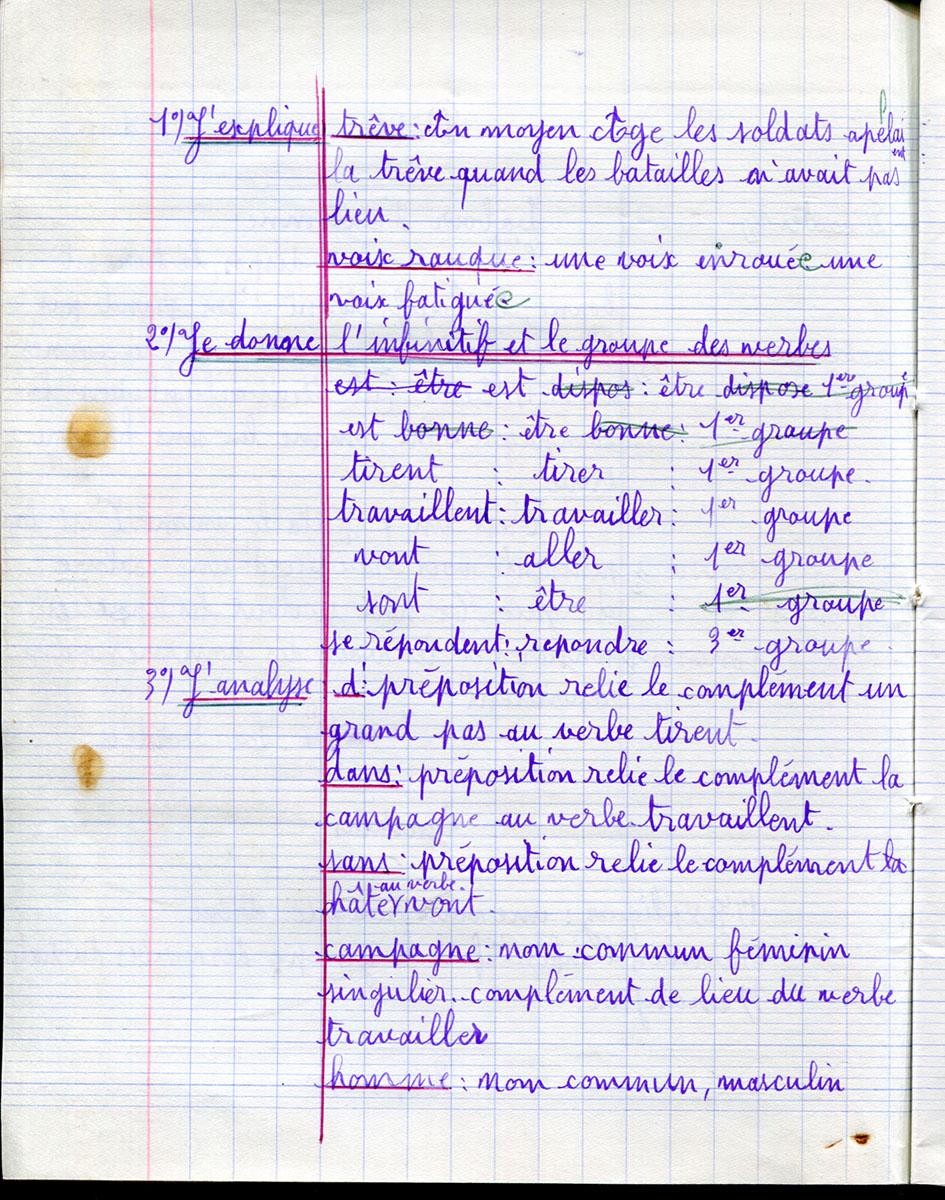 1°) J'explique trêve : Au moyen Age les soldats apelaient
la trêve quand les batailles n'avait pas
lieu.
voix rauque : une voix enrouée une
voix fatiguée
2°) Je donne l'infinitif et le groupe des verbes
est : être est dispos : être dispose 1er groupe
est bonne : être bonne : 1er groupe
tirent : tirer : 1er groupe.
travaillent : travailler : 1er groupe
vont : aller : 1er groupe
sont : être : 1er groupe
se répondent : repondre : 3er groupe.
3°) J'analyse d' : préposition relie le complément un
grand pas au verbe tirent.
dans : préposition relie le complément la
campagne au verbe travaillent.
sans : préposition relie le complément la
hâter au verbe vont.
campagne : nom commun féminin
singulier. complément de lieu du verbe
travailler
homme : nom commun, masculin